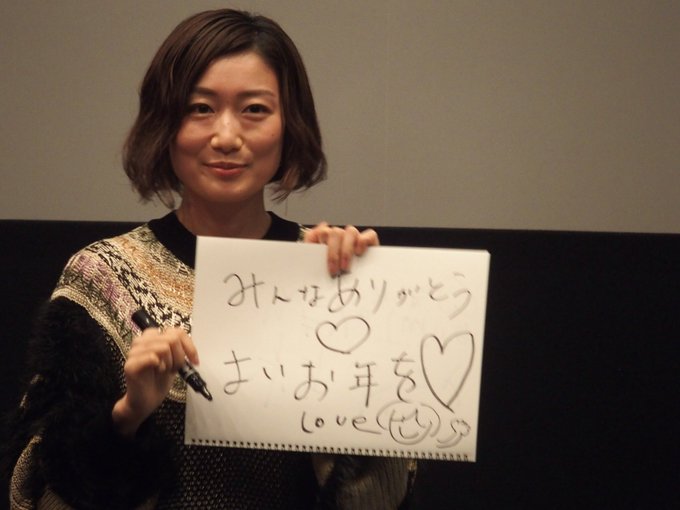 みんなありがとう
よいお年を
Love